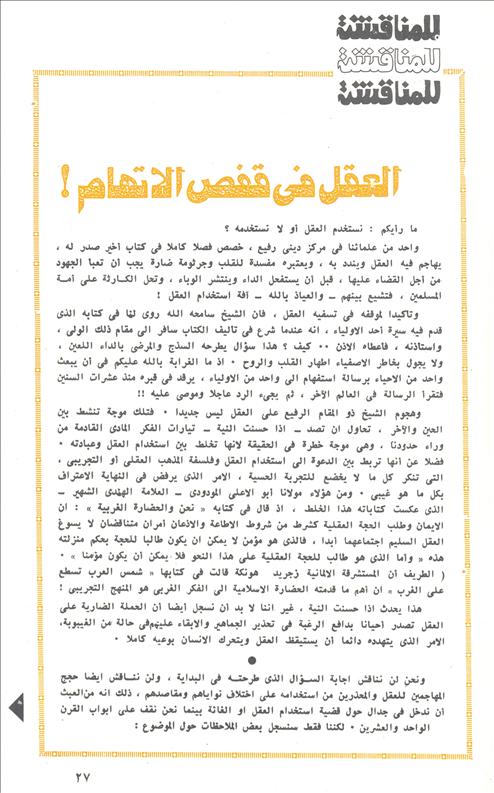 للمناقشة
للمناقشة
للمناقشة
العقل فى قفص الاتهام !
ما رأيكم : نستخدم العقل أو لا نستخدمه ؟
واحد من علمائنا فى مركز دينى رفيع ، خصص فصلا كاملا فى كتاب أخير صدر له ،
يهاجم فيه العقل ويندد به ، ويعتبره مفسدة للقلب وجرثومة ضارة يجب أن تعبأ الجهود
من أجل القضاء عليها ، قبل أن يستفحل الداء وينتشر الوباء ، وتحل الكارثة على أمة
المسلمين ، فتشيع بينهم ــ والعياذ بالله ــ آفة استخدام العقل !
وتأكيدا لموقفه فى تسفيه العقل ، فان الشيخ سامحه الله روى لنا فى كتابه الذى
قدم فيه سيرة أحد الأولياء ، انه عندما شرع فى تأليف الكتاب سافر الى مقام ذلك الولى ،
واستأذنه ، فأعطاه الاذن ٠٠ كيف ؟ هذا سؤال يطرحه السذج والمرضى بالداء اللعين ،
ولا يجول بخاطر الاصفياء اطهار القلب والروح ٠ اذ ما الغرابة بالله عليكم فى أن يبعث
واحد من الأحياء برسالة استفهام الى واحد من الأولياء ، يرقد فى قبره منذ عشرات السنين
فتقرأ الرسالة فى العالم الآخر ، ثم يجىء الرد عاجلا وموصى عليه !!
وهجوم الشيخ ذو المقام الرفيع على العقل ليس جديدا ٠ فتلك موجة تنشط بين
الحين والآخر ، تحاول ان تصد ــ اذا حسنت النية ــ تيارات الفكر المادى القادمة من
وراء حدودنا ، وهى موجة خطرة فى الحقيقة لانها تخلط بين استخدام العقل وعبادته ٠
فضلا عن انها تربط بين الدعوة الى استخدام العقل وفلسفة المذهب العقلى أو التجريبى ،
التى تنكر كل ما لا يخضع للتجربة الحسية ، الامر الذى يرفض فى النهاية الاعتراف
بكل ما هو غيبى ٠ ومن هؤلاء مولانا أبو الاعلى المودودى ــ العلامة الهندى الشهير ــ
الذى عكست كتاباته هذا الخلط ، اذ قال فى كتابه « نحن والحضارة الغربية » : ان
الايمان وطلب الحجة العقلية كشرط من شروط الاطاعة والاذعان أمران متناقضان لا يسوغ
العقل السليم اجتماعهما أبدا ، فالذى هو مؤمن لا يمكن ان يكون طالبا للحجة بحكم منزلته
هذه « وأما الذى هو طالب للحجة العقلية على هذا النحو فلا يمكن أن يكون مؤمنا » ٠
( الطريف أن المستشرقة الالمانية زجريد هونكة قالت فى كتابها « شمس العرب تسطع
على الغرب » ان أهم ما قدمته الحضارة الاسلامية الى الفكر الغربى هو المنهج التجريبى !
هذا يحدث اذا حسنت النية ، غير اننا لا بد أن نسجل أيضا أن الحملة الضارية على
العقل تصدر أحيانا بدافع الرغبة فى تخدير الجماهير والابقاء عليهم فى حالة من الغيبوبة،
الامر الذى يتهدده دائما أن يستيقظ العقل ويتحرك الانسان بوعيه كاملا ٠
●
ونحن لن نناقش اجابة السؤال الذى طرحته فى البداية ، ولن نناقش أيضا حجج
المهاجمين للعقل والمحذرين من استخدامه على اختلاف نواياهم ومقاصدهم ، ذلك انه من العبث
أن ندخل فى جدال حول قضية استخدام العقل او الغائه بينما نحن نقف على ابواب القرن
الواحد والعشرين ٠ لكننا فقط سنسجل بعض الملاحظات حول الموضوع :
٢٧